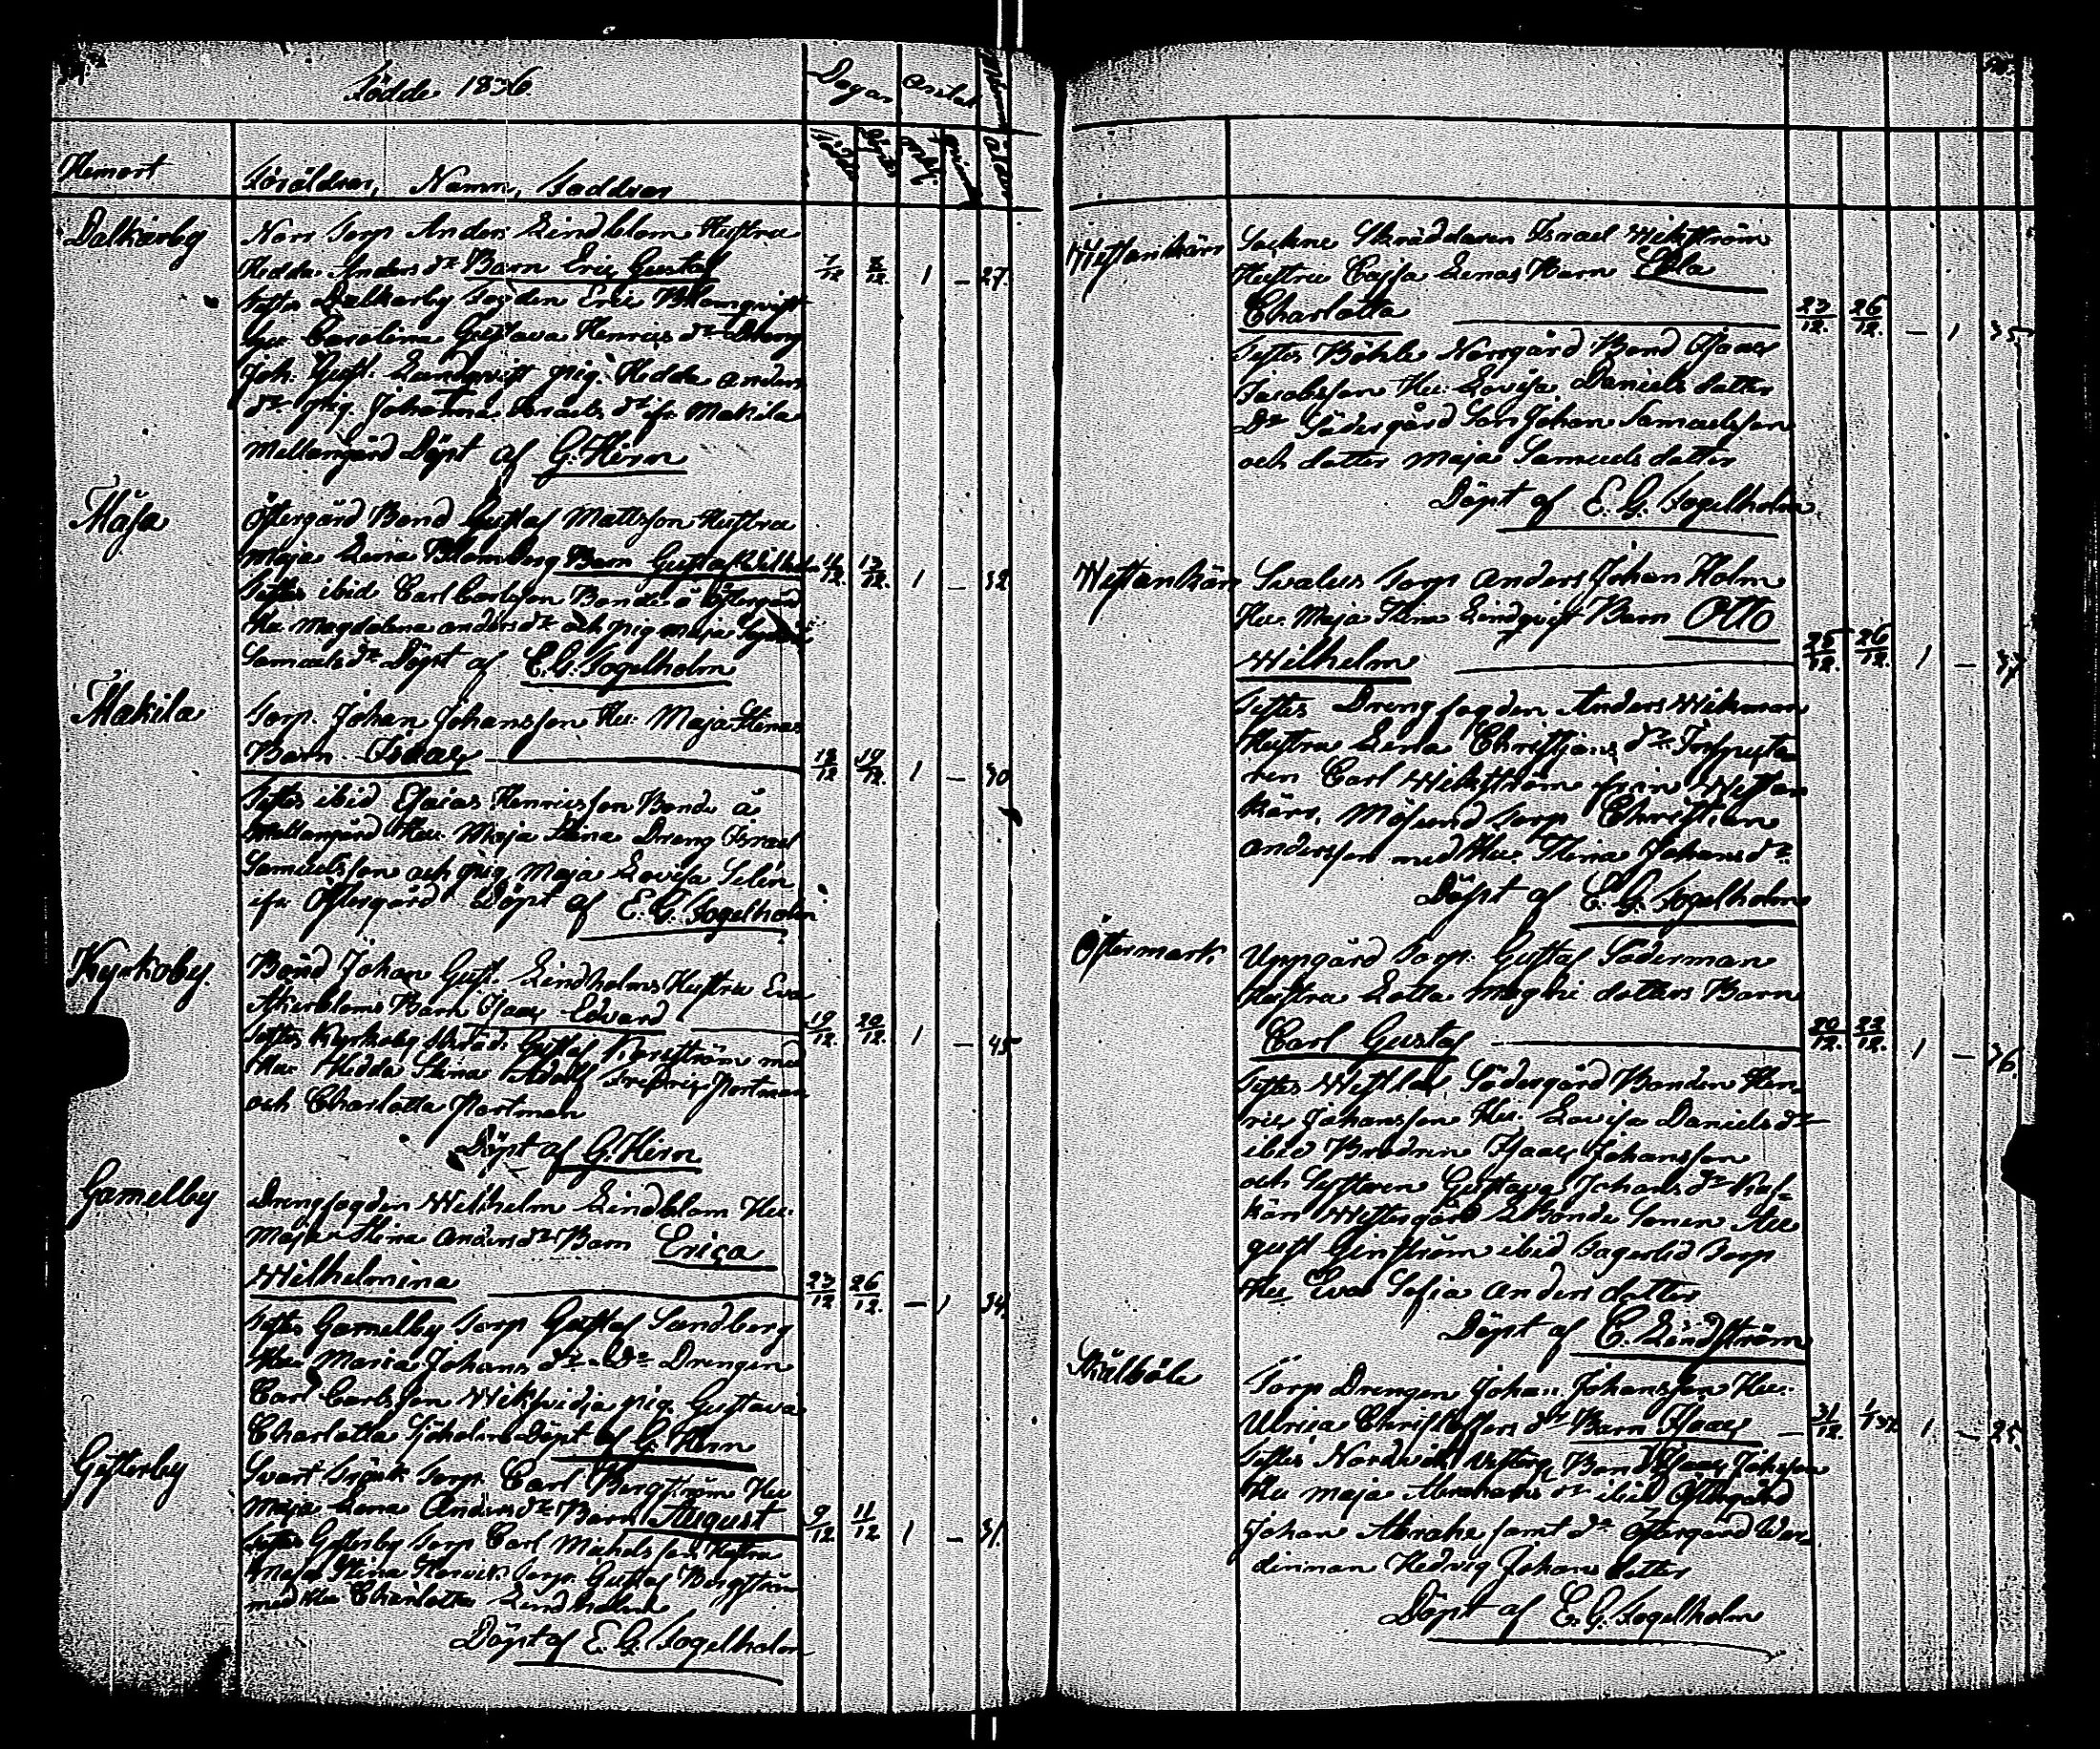 Födde 1836.
Dagar antal
Hemort
Föräldrar, Namn, Faddrar
Dalkarby
Norr Torp Anders Lindblom Hustru
Hedda Anders dr Barn Eric Gustaf
7/12 8/12. 1 – 27.
Testes Dalkarby Fogden Eric Blomqvist
Hu Carolina Gustava Henrics dr Dreng
Joh: Gust. Lundqvist pig. Hedda Anders
dr pig. Johanna Israels dr ifr Makila
Mellangård Döpt af G. Hirn
Masa
Östergård Bond Gustaf Mattsson Hustru
Maja Lena Blomberg Barn Gustaf Wilhelm
12. 13/12. 1 – 32
Testes ibid Carl Carlsson Bonde å Östergård
Hu Magdalena Anders dr och pig Maja
Samuels dr Döpt af E. G. Fogelholm
Makila
Torp. Johan Johansson Hu. Maja Stinas
Barn Isaac
18/12 19/12. 1 – 30
Testes ibid Esaias Henricsson Bonde å
Mellangård Hu. Maja Lena Dreng Israel
Samuelsson och pig Maja Lovisa Selin
ifr Östergård Döpt af E. G. Fogelholm
Kyrkoby.
Bond Johan Gust. Lindholms Hustru Eva
Åkerbloms Barn Isaac Edvard
19/12 20/12. 1 – 45
Testes Kyrkoby Gustaf med
Hu Hedda Stina Adolf Fredric Nortman
och Charlotta Nortman
Döpt af G. Hirn
Gamelby
Drengfogden Wilhelm Lindblom Hu.
Maja Stina Anders dr Barn Erica
Wilhelmina
23/12 26/12. – 1 34
Testes Gamelby Torp Gustaf Sandberg
Hu Maria Johans dr Do Drengen
Carl Carlsson pig. Gustava
Charlotta Sjöholm Döpt af G. Hirn
Gesterby
Svart Torp. Carl Bergström Hu
Maja Lena Anders dr Barn August
9/12 11/12 1 – 31.
Testes Gesterby Torp Carl Michelsson Hustru
Maja Stina Torp. Gustaf Bergström
med Hu Charlotta Lindholm
Döpt af E. G. Fogelholm
Westankärr
Sockne Skräddaren Israel Wikström
Hustru Cajsa Lenas Barn Ebla
Charlotta
23/12. 26/12. – 1 35.
Testes Böhle Norrgård Bond Isaac
Jacobsson Hu. Lovisa Daniels dotter
Do Södergård Son Johan Samuelsson
och dotter Maja Samuels dotter
Döpt af E. G. Fogelholm
Westankärr
Svalus Torp Anders Johan Holm
Hu. Maja Stina Lindqvist Barn Otto
Wilhelm
25/12. 26/12. 1 – 37
Testes Drengfogden Anders Wikman
Hustru Lena Christians dr Inspecto
ren Carl Wikström från Westan
kärr, Mösund Torp Christian
Andersson med Hu. Stina Johans dr
Döpt af E. G. Fogelholm
Östermark
Uppgård Torp. Gustaf Söderman
Hustru Lotta dotters Barn
Carl Gustaf
20/12. 22/12. 1 – 36.
Testes Westlax Södergård Bonden Hen
ric Johansson Hu. Lovisa Daniels dr
ibid Brodren Isaac Johansson
och Systeren Gustava Johans dr
kärr Westergård Bonde Sonen Au
gust Ginström ibid Torp
Hu Eva Sofia Anders dotter
Döpt af C. Lindström
Skålböle
Torp Drengen Johan Johansson Hu.
Ulrica Christoffers dr Barn Isaac
31/12. 1/1 37 1 – 25.
Testes Nordvik Bond Isaac
Hu Maja Abrahams dr ibid Östergård
Johan samt do Östergård Wär
dinnan Hedvig Johans dotter
Döpt af E. G. Fogelholm